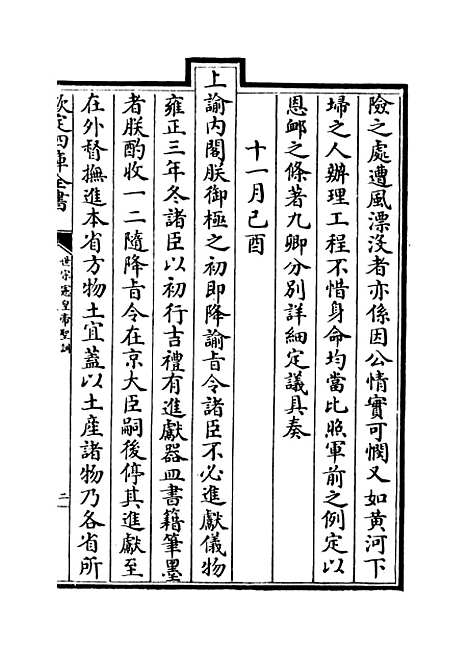 險之處遭風漂没者亦係因公情實可憫又如黄河下
埽之人辦理工程不惜身命均當比照軍前之例定以
恩䘏之條著九卿分别詳細定議具奏
十一月己酉
上諭内閣朕御極之初即降諭㫖令諸臣不必進獻儀物
雍正三年冬諸臣以初行吉禮有進獻器皿書籍筆墨
者朕酌收一二隨降㫖令在京大臣嗣後停其進獻至
在外督撫進本省方物土宜蓋以土産諸物乃各省所
欽定四庫全書
世宗憲皇帝聖訓
二